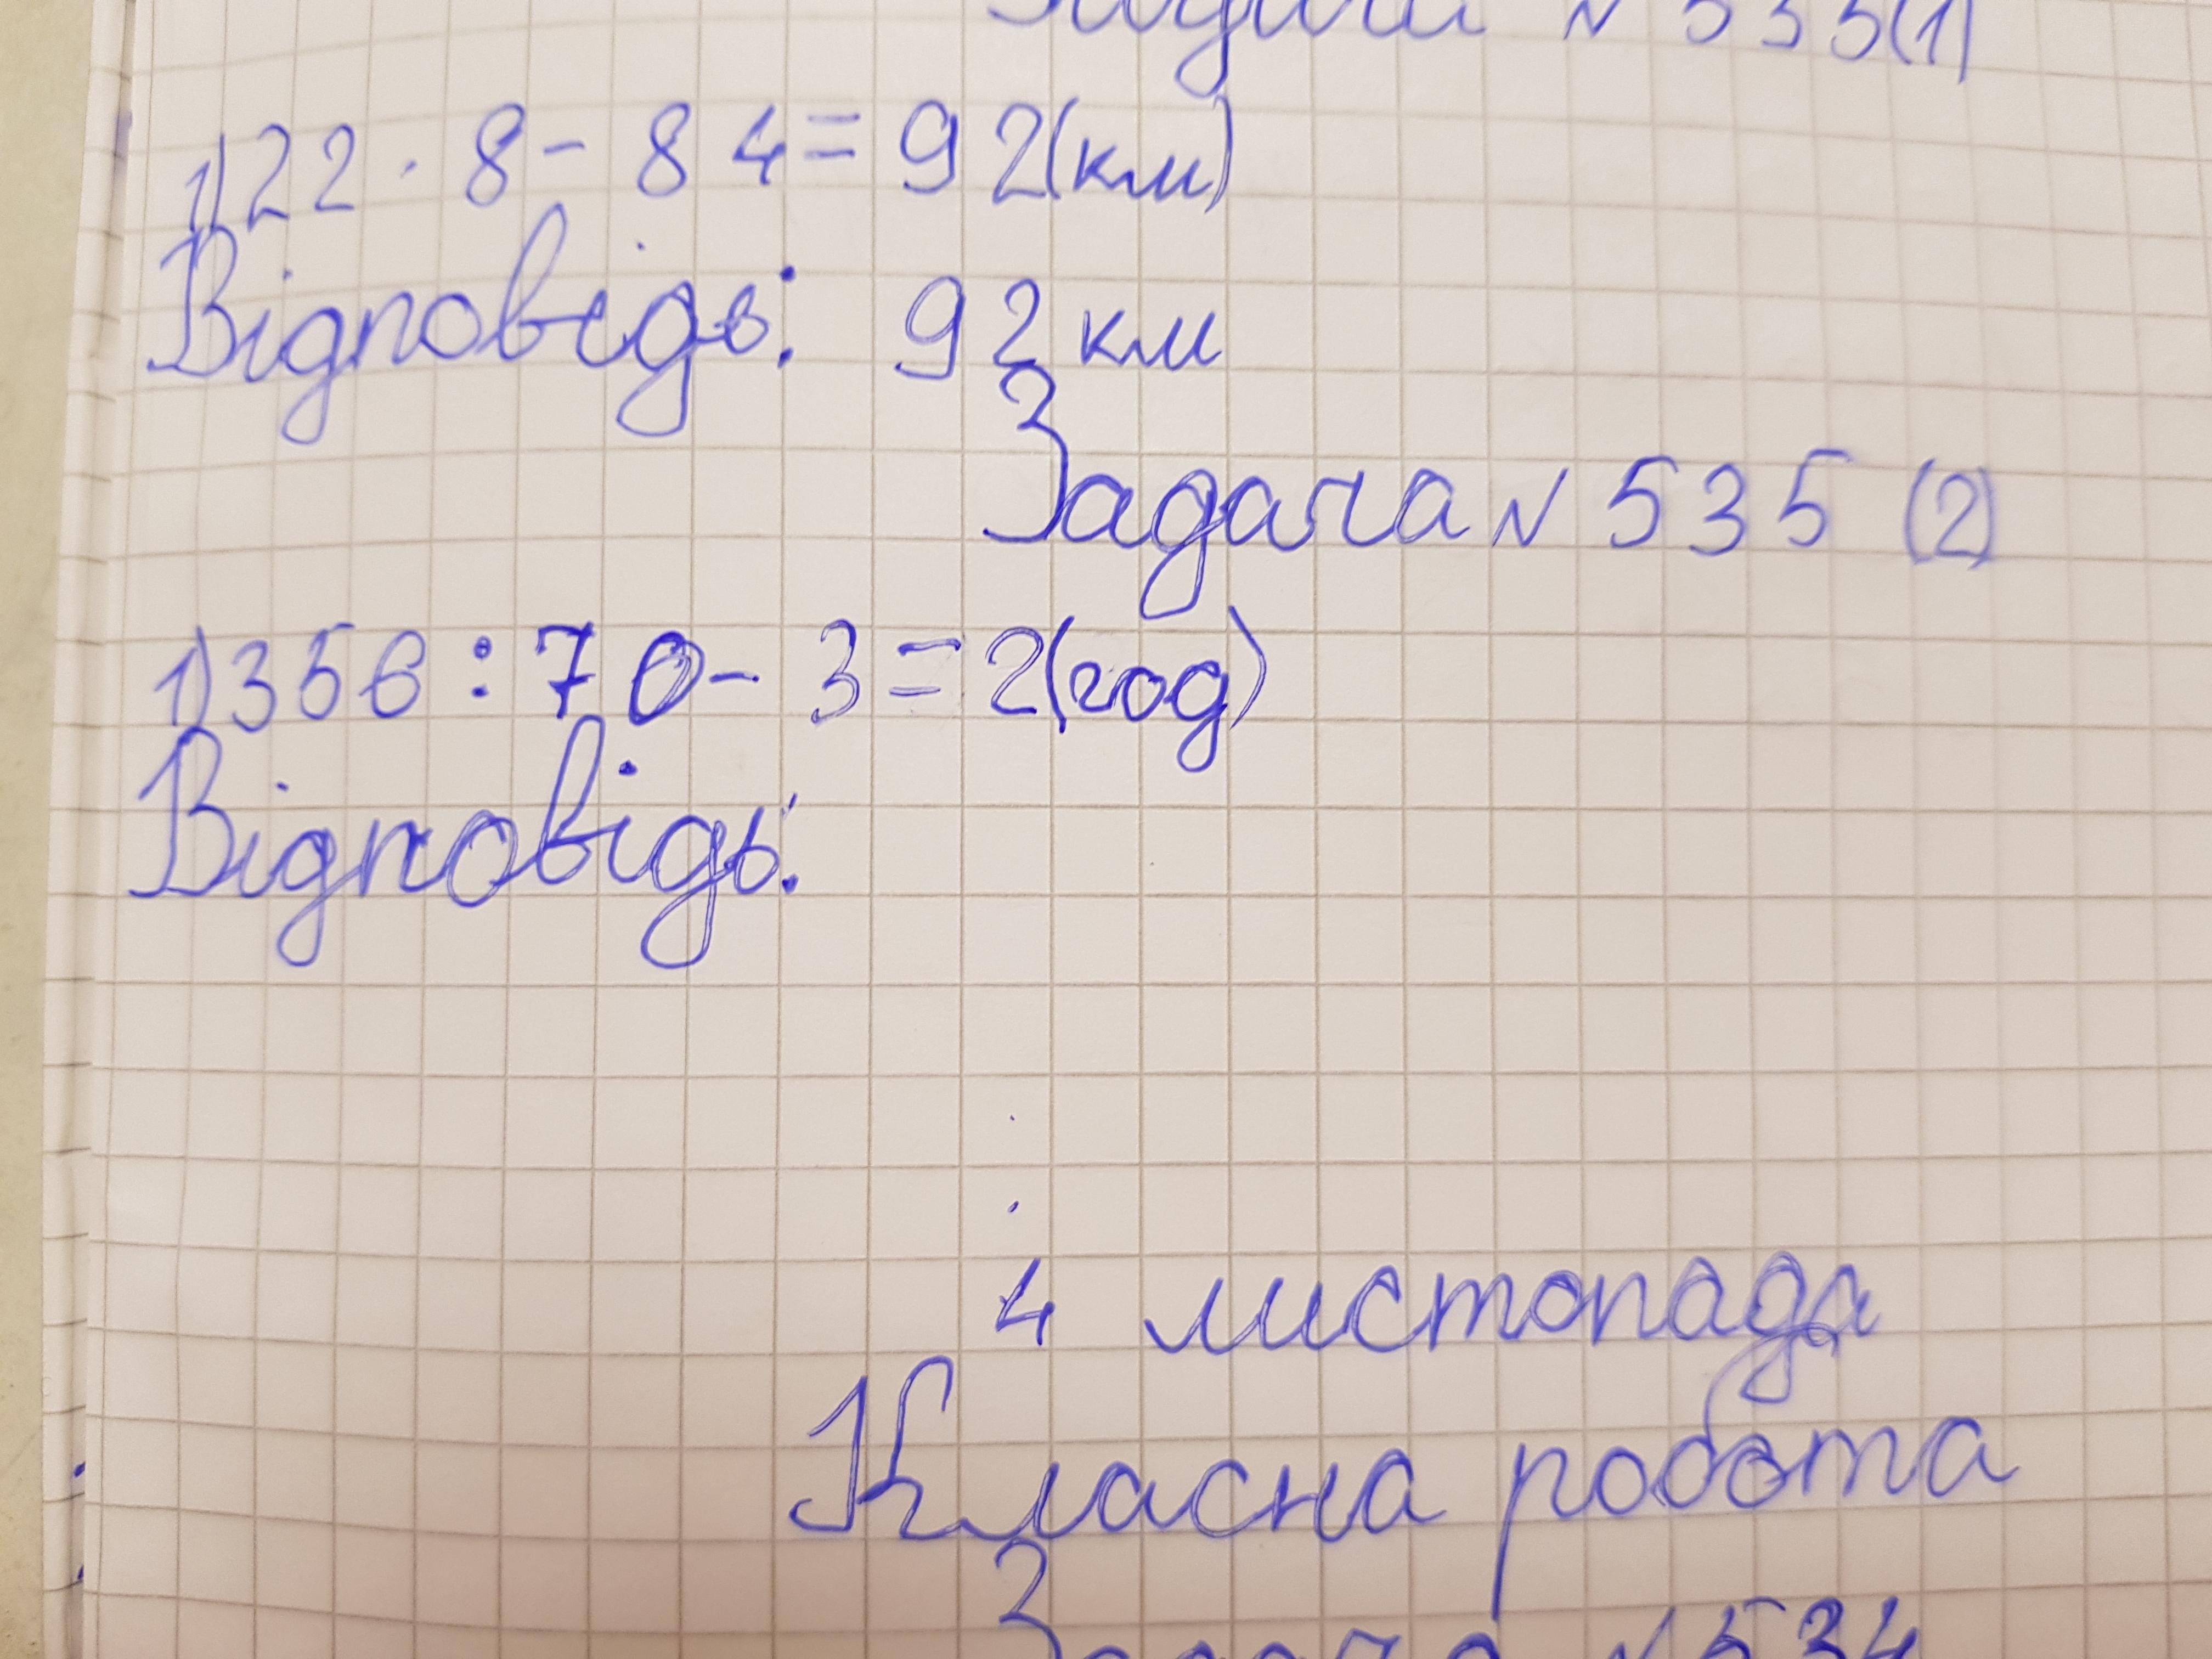 Задача № 535(1)
1)22 · 8 - 84 = 92(км)
Відповідь: 92 км
Задача № 535 (2)
1)350 : 70 - 3 = 2(год)
Відповідь:
4 листопада
Класна робота
Задача № 534